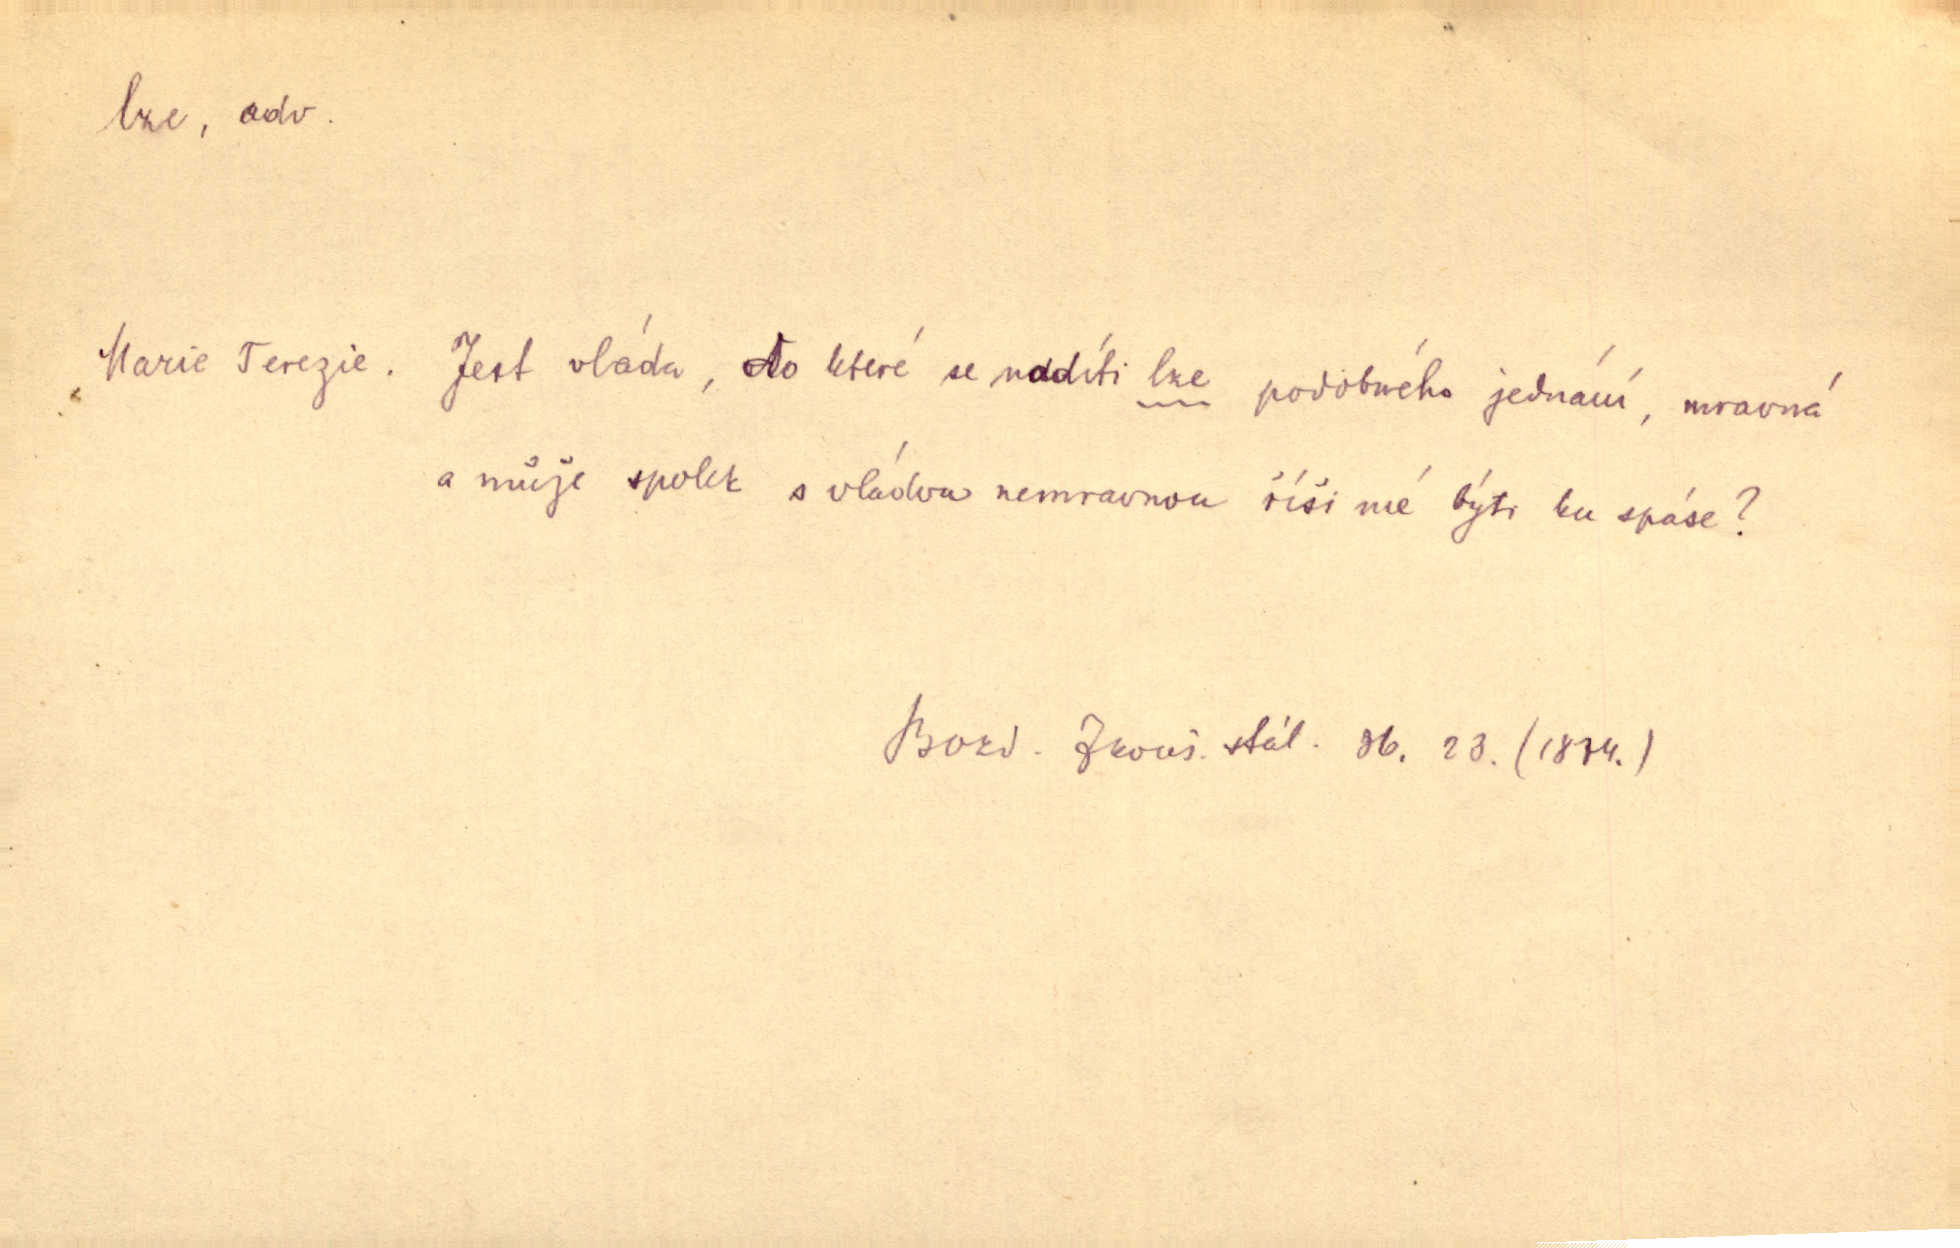 lze, adv.
Marie Terezie. Jest vláda, do které se nadíti lze podobného jednání, mravná
a může spolek s vládou nemravnou říši mé býti ku spáse?
Bozd. Zkouš. stát. 86. 23. (1874.)